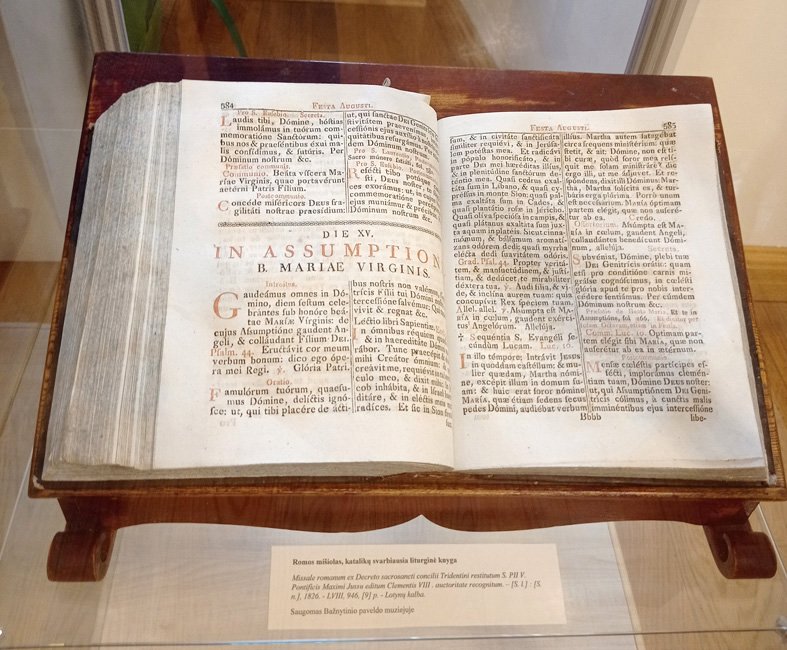 584 FESTA AUGUSTI.
Pro S. Eusebio. Secreta.
Laudis tibi, Dómine, hóstias
immolámus in tuórum com-
memoratióne Sanctórum: qui-
bus nos & præséntibus éxui ma-
lis confídimus, & futúris. Per
Dóminum nostrum &c.
Præfatio communis.
Communio. Beáta víscera Ma-
ríæ Vírginis, quæ portavérunt
ætérni Patris Fílium.
Postcommunio.
Concéde miséricors DEUS fra-
gilitáti nostræ præsídium:
ut, qui sanctæ DEI
cessiónis ejus auxílio
quitátibus resurgámus.
dem Dóminum nostrum &c.
Pro S. Eusebio.
DIE XV.
IN ASSUMPTION
B. MARIAE VIRGINIS.
Introitus.
Gaudeámus omnes in Dó-
mino, diem festum cele-
brántes sub honóre beá-
tæ MARIÆ Vírginis: de
cujus Assumptióne gaudent An-
geli, & colláudant Fílium DEI.
Psalm. 44. Eructávit cor meum
verbum bonum: dico ego ópe-
ra mei Regi. ℣. Glória Patri.
Oratio.
Famulórum tuórum, quæsu-
mus Dómine, delíctis ignó-
sce: ut, qui tibi placére de ácti-
bus nostris non valémus,
tricis Fílii tui Dómini no
tercessióne salvémur: Qui
vivit & regnat &c.
Léctio libri Sapientiæ.
In ómnibus réquiem
& in hæreditáte Dómini
rábor. Tunc præcépit
mihi Creátor ómnium:
creávit me, requiévit
culo meo, & dixit mihi
cob inhábita, & in Israël
ditáre, & in eléctis
radíces. Et sic in Sion
FESTA AUGUSTI. 585
sum, & in civitáte sanctificáta
simíliter requiévi, & in Jerúsa-
lem potéstas mea. Et radicávi
in pópulo honorificáto, & in
parte Dei mei hæréditas illíus,
& in plenitúdine Sanctórum de-
téntio mea. Quasi cedrus exal-
táta sum in Líbano, & quasi cy-
préssus in monte Sion: quasi pal-
ma exaltáta sum in Cades, &
quasi plantátio rosæ in Jéricho.
Quasi olíva speciósa in campis, &
quasi plátanus exaltáta sum jux-
ta aquam in platéis. Sicut cinna-
mómum, & bálsamum aromatí-
zans odórem dedi: quasi myrrha
elécta dedi suavitátem odóris.
Grad. Psal. 44. Propter veritá-
tem, & mansuetúdinem, & justí-
tiam, & dedúcet te mirabíliter
déxtera tua. ℣. Audi fília, & vi-
de, & inclína aurem tuam: quia
concupívit Rex spéciem tuam.
Allel. allel. ℣. Assúmpta est Ma-
ría in cœlum, gaudet exérci-
tus Angelórum. Allelúja.
✝ Sequéntia S. Evangélii se-
cúndum Lucam. Luc. 10.
In illo témpore: Intrávit JESUS
in quoddam castéllum: & mu-
lier quædam, Martha nómi-
ne, excépit illum in domum su-
am: & huic erat soror nómine
MARÍA, quæ étiam sedens secus
pedes Dómini, audiébat verbum
illíus. Martha autem satagébat
circa frequens ministérium: quæ
stetit, & ait: Dómine, non est ti-
bi curæ, quod soror mea relí-
quit me solam ministráre? dic
ergo illi, ut me ádjuvet. Et re-
spóndens, dixit illi Dóminus: Mar-
tha, Martha sollícita es, & tur-
báris erga plúrima. Porro unum
est necessárium. MARÍA óptimam
partem elégit, quæ non auferé-
tur ab ea. Credo.
Offertorium. Assúmpta est MA-
RÍA in cœlum, gaudent Angeli,
collaudántes benedícunt Dómi-
num, allelúja. Secreta.
Subvéniat, Dómine, plebi tuæ
DEI Genitrícis orátio: quam
etsi pro conditióne carnis mi-
grásse cognóscimus, in cœlésti
glória apud te pro nobis inter-
cédere sentiámus. Per eúmdem
Dóminum nostrum &c.
Præfatio de Sancta Maria. Et te in
Assumptióne, fol. 266.
Comm. Luc. 10. Optimam par-
tem elégit sibi MARÍA, quæ non
auferétur ab ea in ætérnum.
Postcommunio.
Mensæ cœléstis partícipes ef-
fécti, implorámus clemén-
tiam tuam, Dómine DEUS noster:
ut, qui Assumptiónem DEI Geni-
trícis cólimus, à cunctis malis
imminéntibus ejus intercessióne
Bbbb libe-
Romos mišiolas, katalikų svarbiausia liturginė knyga
Missale romanum ex Decreto sacrosancti concilii Tridentini restitutum S. PII V.
Pontificis Maximi Jussu editum Clementis VIII . auctoritate recognitum. – [S. l.] : [S.
n.], 1826. - LVIII, 946, [9] p. - Lotynų kalba.
Saugomas Bažnytinio paveldo muziejuje